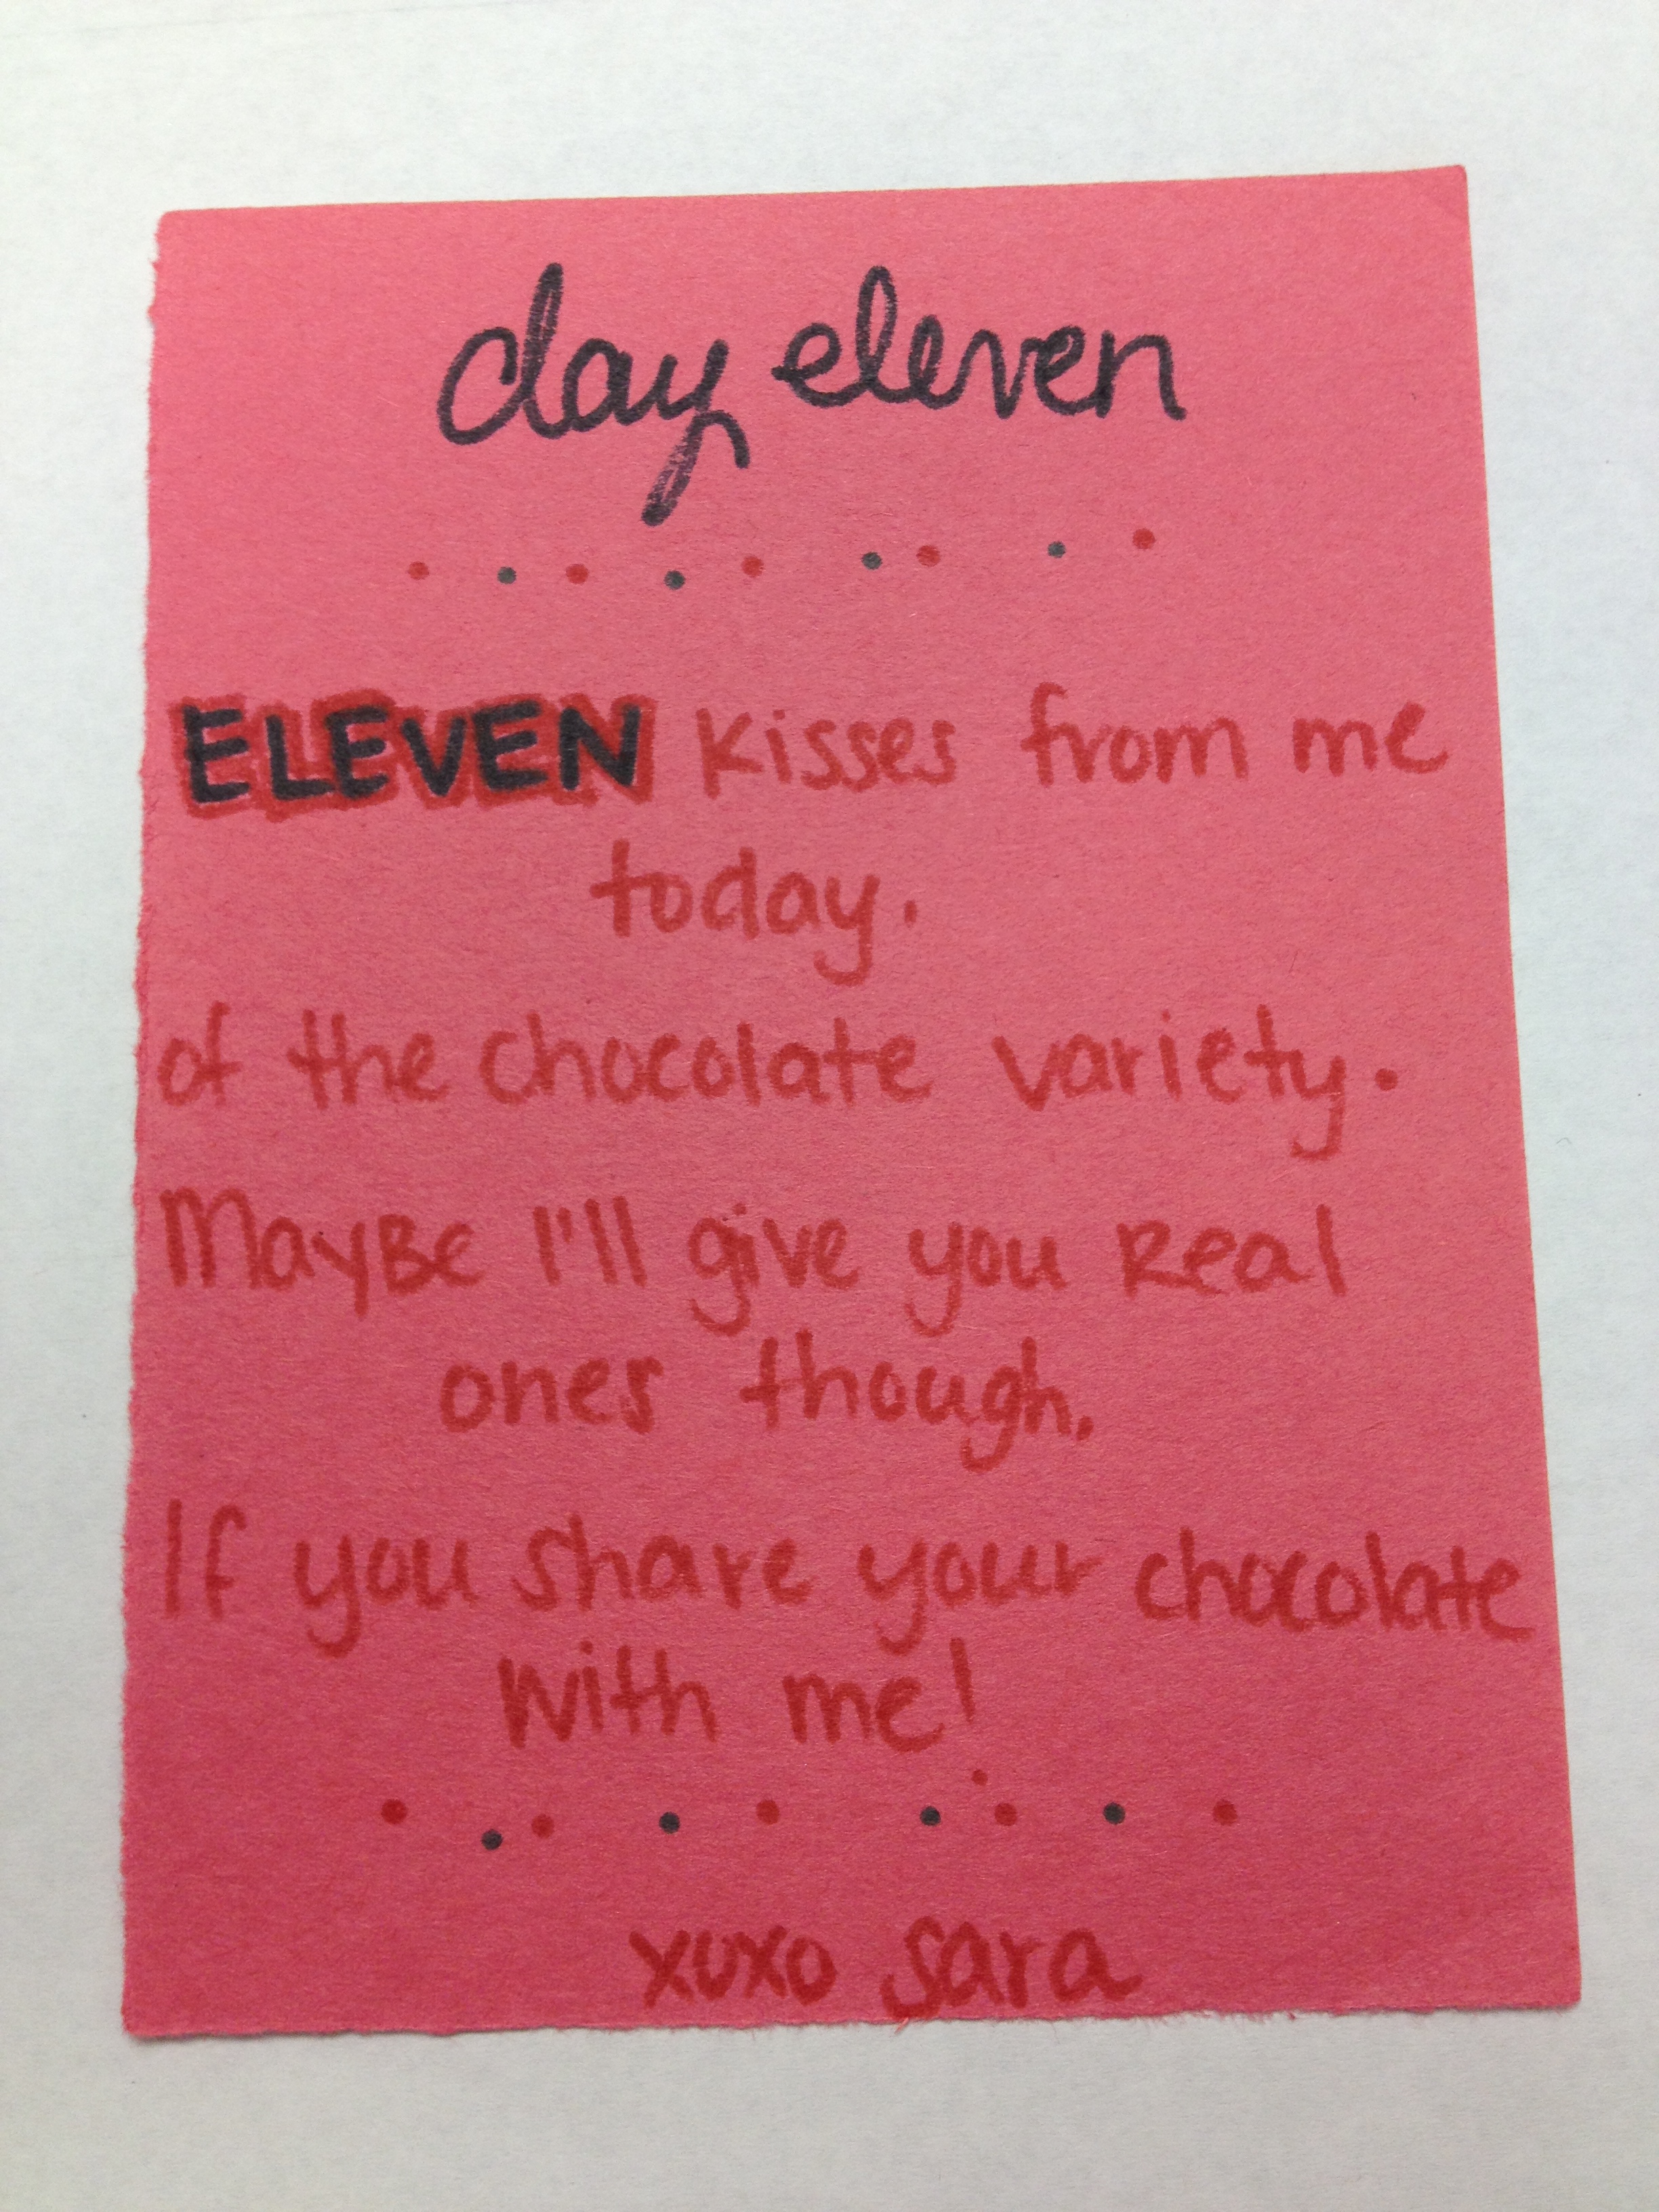 day eleven
ELEVEN kisses from me
today.
of the chocolate variety.
MayBe I'll give you Real
ones though.
If you share your chocolate
with me!
xoxo sara